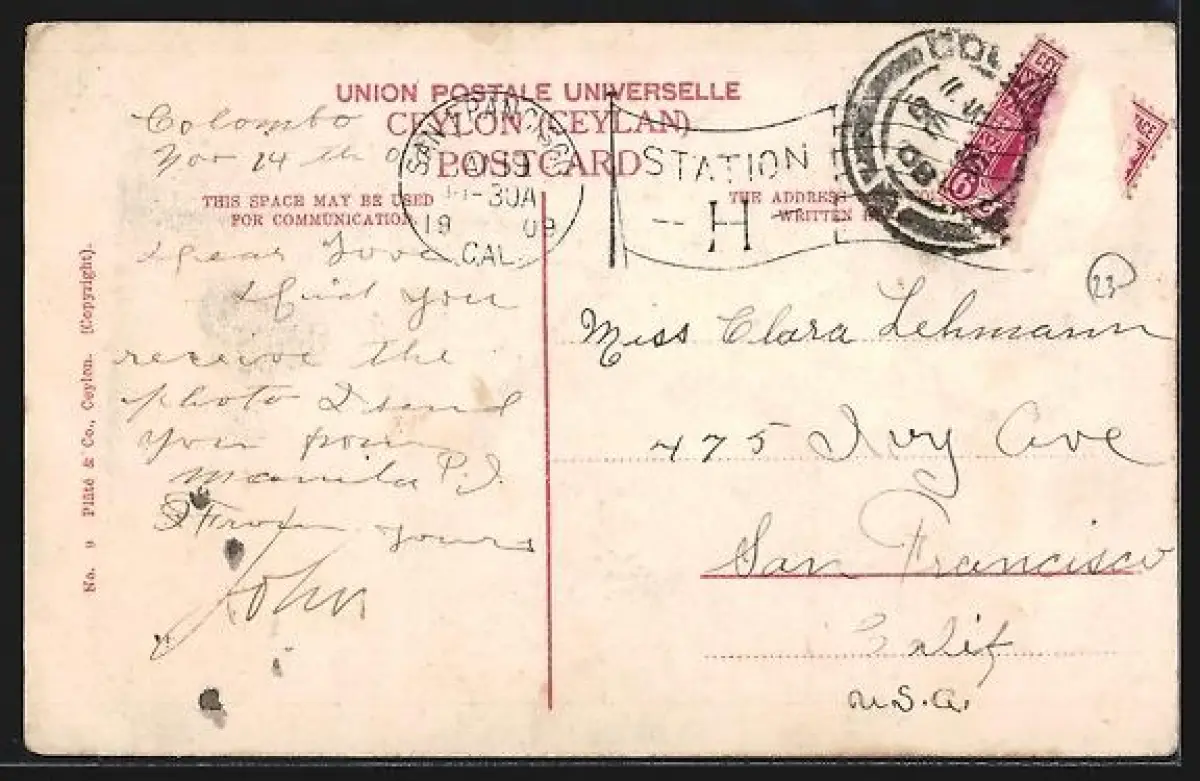 UNION POSTALE UNIVERSELLE
CEYLON (CEYLAN)
POSTCARD
THIS SPACE MAY BE USED
FOR COMMUNICATION.
THE ADDRESS
WRITTEN
SAN FRANCISCO
11-30A
19 09
CAL.
STATION
H
COL
09
6
23
Colombo
Nov 14 th
Dear
I find you
receive the
photo I send
you from
Manila P.I.
From yours
John
Miss Clara Lehmann
475 Ivy Ave
San Francisco
Calif
U.S.A.
No. 9 Plâté & Co., Ceylon. (Copyright).